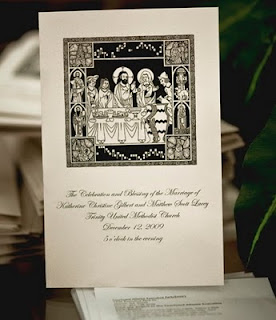 The Celebration and Blessing of the Marriage of
Katherine Christine Gilbert and Matthew Scott Lacey
Trinity United Methodist Church
December 12, 2009
5 o'clock in the evening